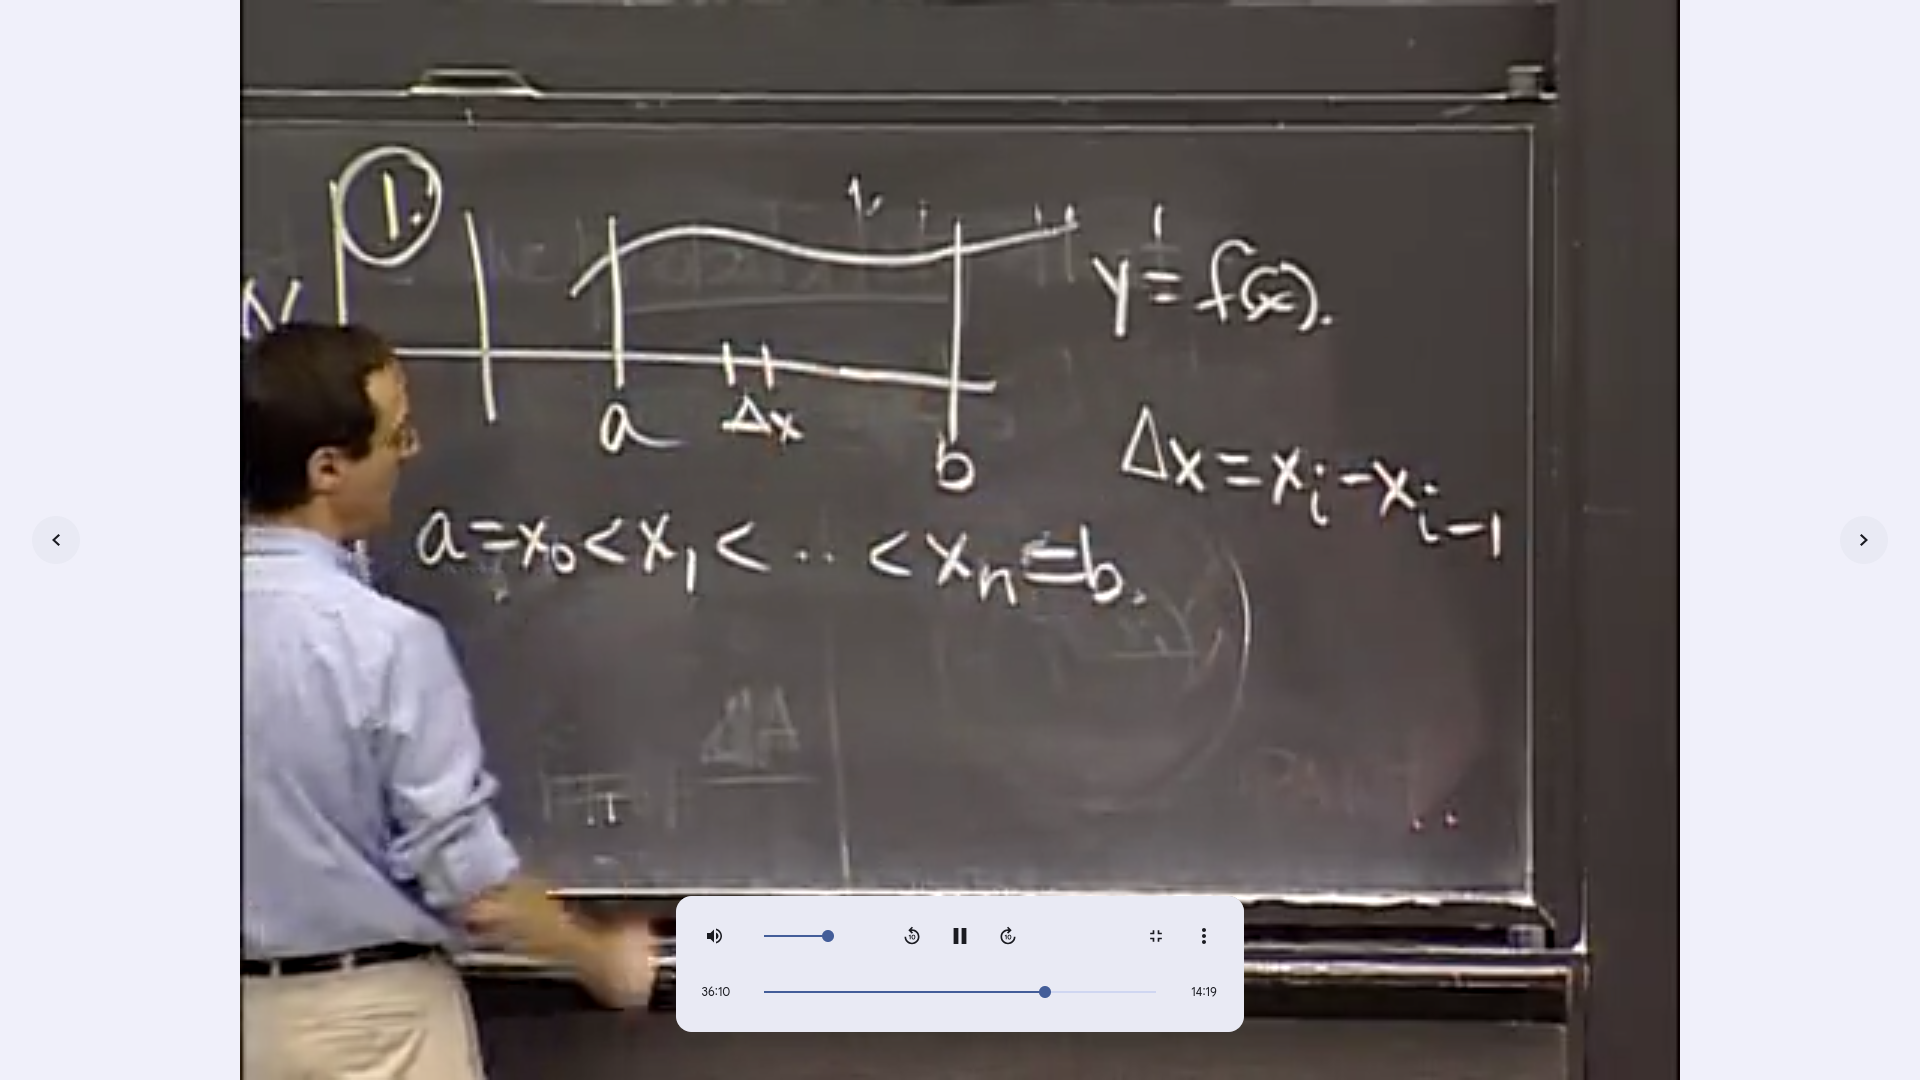 1.
y = f(x).
a
Δx
b
Δx = xᵢ - xᵢ₋₁
a = x₀ < x₁ < .. < xₙ = b.
ΔA
10
10
36:10
14:19